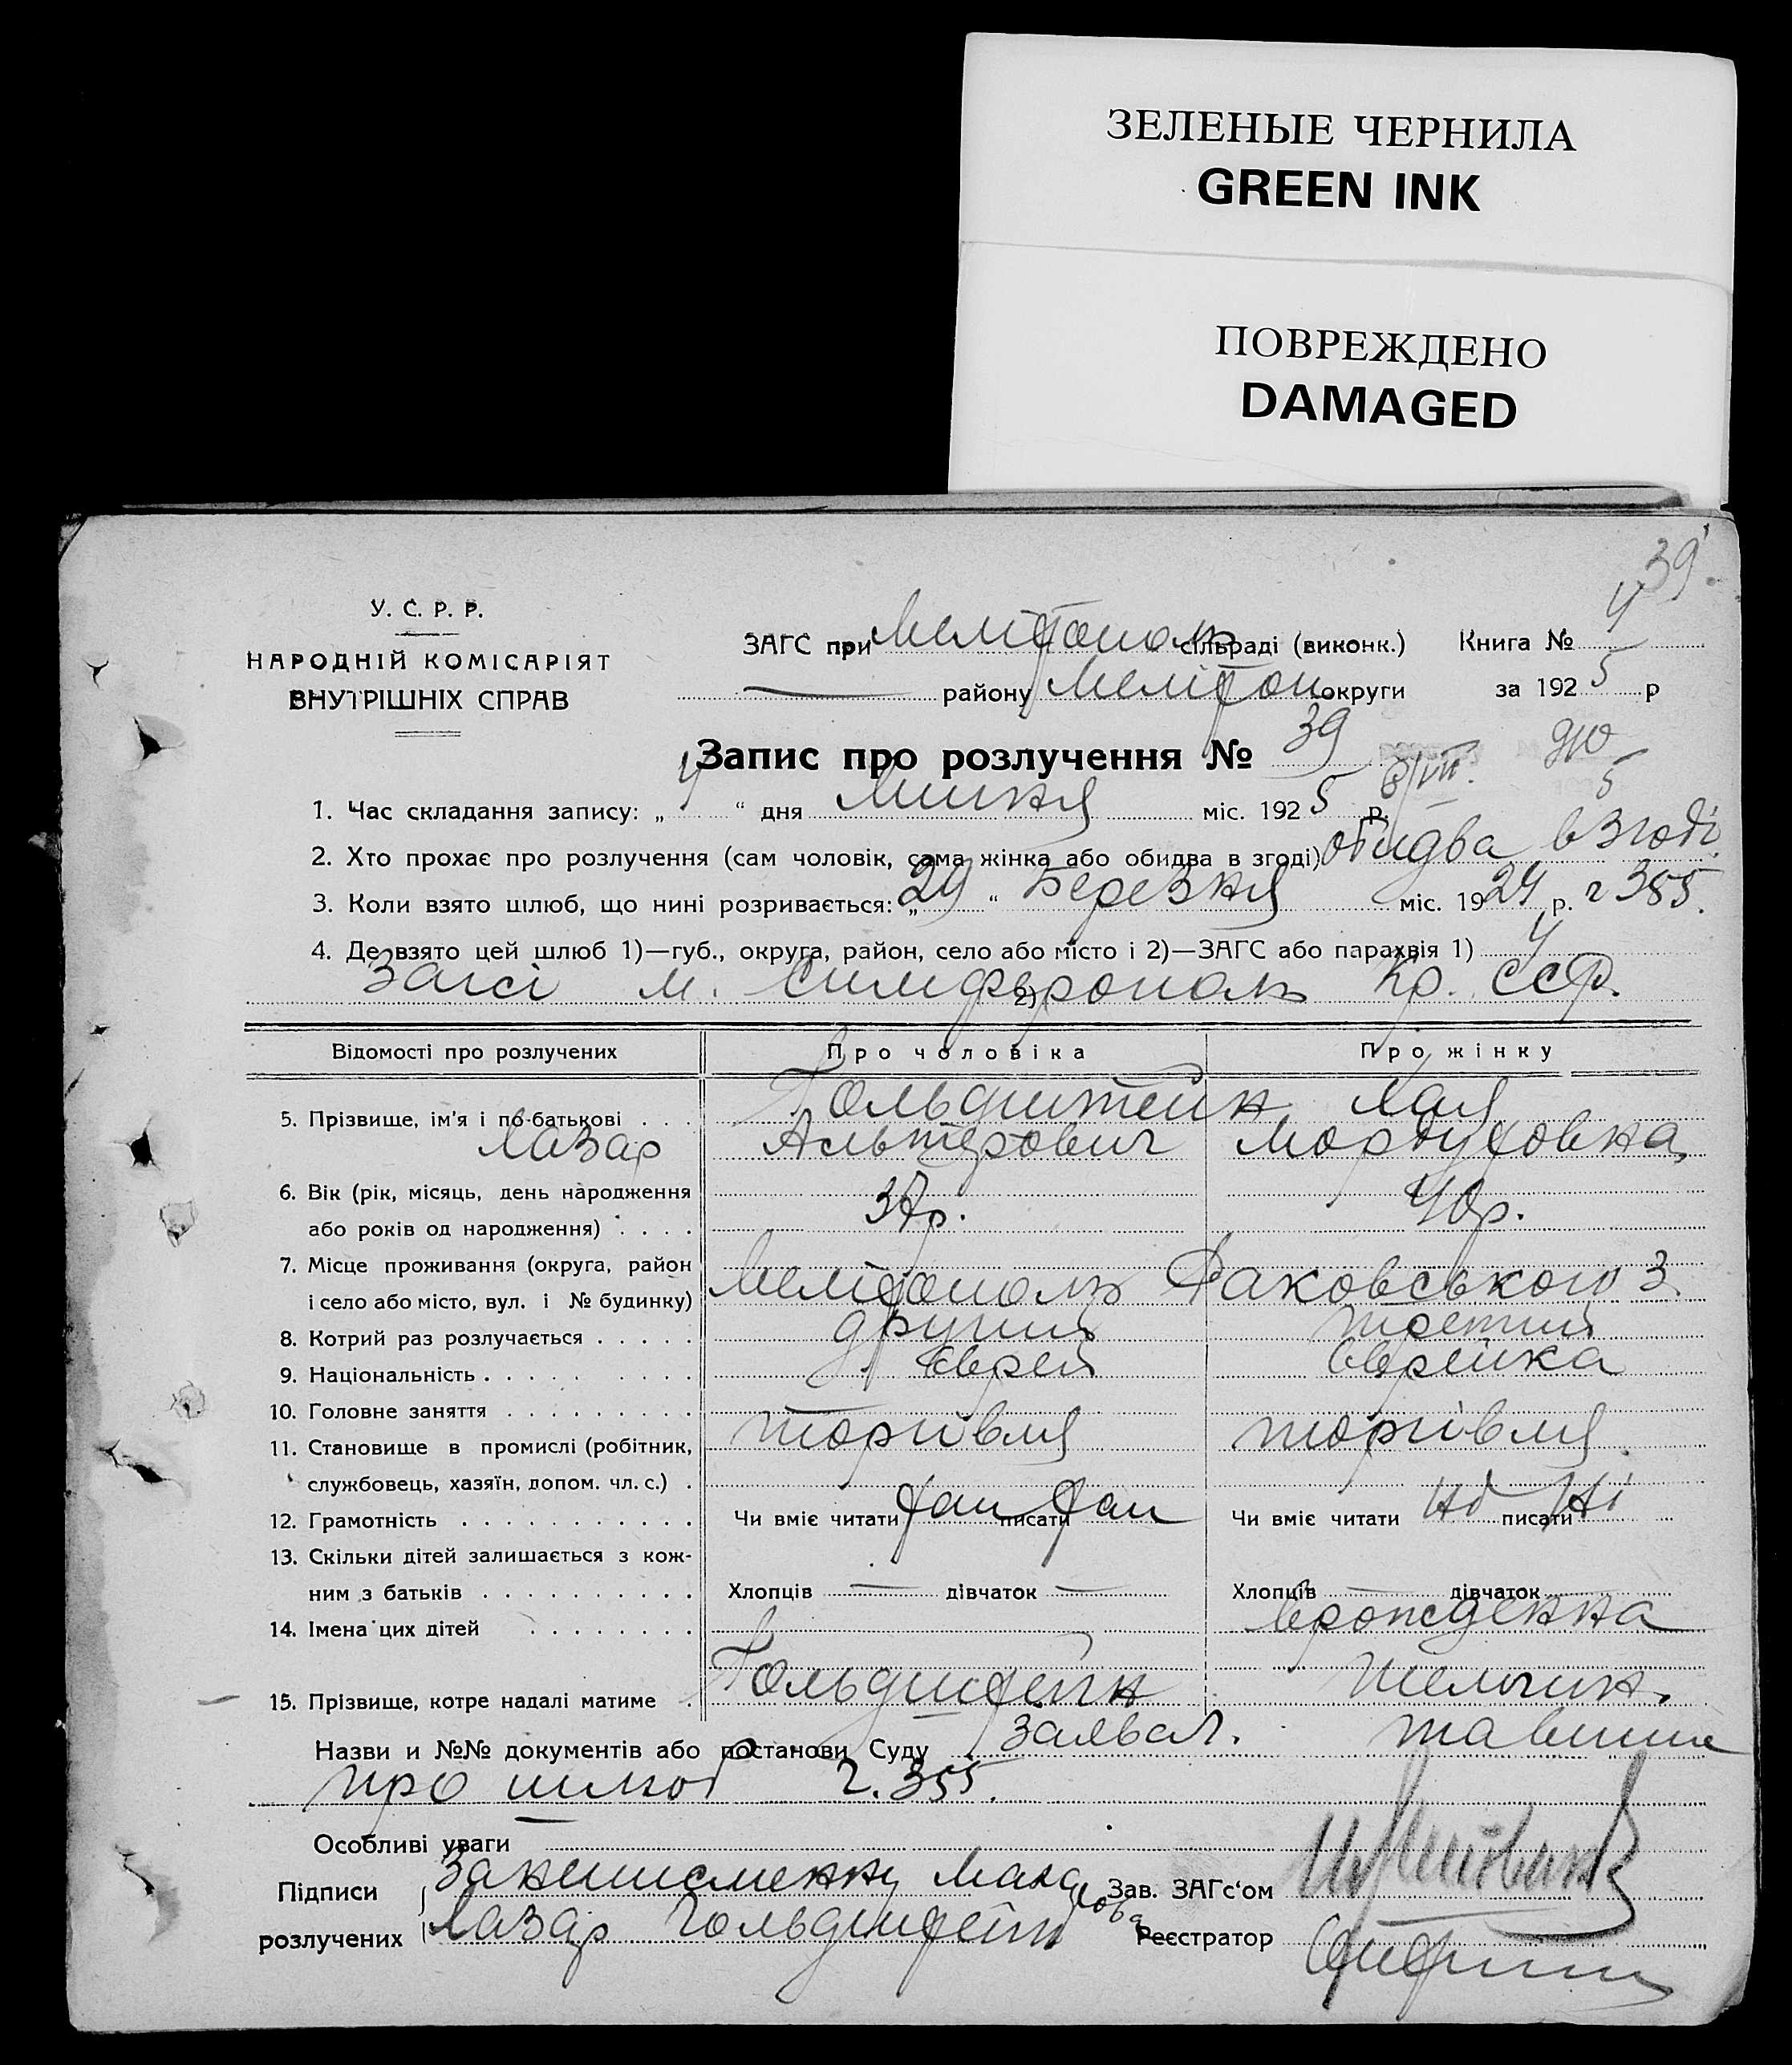 ЗЕЛЕНЫЕ ЧЕРНИЛА
GREEN INK
ПОВРЕЖДЕНО
DAMAGED
39
У. С. Р. Р.
НАРОДНІЙ КОМІСАРІЯТ
ВНУТРІШНІХ СПРАВ
ЗАГС при Мелітополь сільраді (виконк.) Книга № 4
— району Мелітоп округи за 1925 р
Запис про розлучення № 39
1. Час складання запису: „ 4 “ дня Липня міс. 1925 р.
2. Хто прохає про розлучення (сам чоловік, сама жінка або обидва в згоді) обидва в згоді
3. Коли взято шлюб, що нині розривається: „ 29 “ Березня міс. 1924 р. г 355.
4. Де взято цей шлюб 1)—губ., округа, район, село або місто і 2)—ЗАГС або парахвія 1) У
Загсі м. Симферополь 2) Кр. ССР.
Відомості про розлучених Про чоловіка Про жінку
5. Прізвище, ім'я і по-батькові . . . Гольдштейн Хая
Лазар Альтерович Мордуховна
6. Вік (рік, місяць, день народження
або років од народження) . . . . 37 р. 40 р.
7. Місце проживання (округа, район
і село або місто, вул. і № будинку) Мелітополь Раковського 3
8. Котрий раз розлучається . . . . . другий третий
9. Національність . . . . . . . . . Єврей Єврейка
10. Головне заняття . . . . . . . . .
11. Становище в промислі (робітник, торгівля торгівля
службовець, хазяїн, допом. чл. с.) .
12. Грамотність . . . . . . . . . . . Чи вміє читати так писати так Чи вміє читати ні писати ні
13. Скільки дітей залишається з кож-
ним з батьків . . . . . . . . . . Хлопців — дівчаток — Хлопців — дівчаток
14. Імена цих дітей . . . . . . . . врожденна
15. Прізвище, котре надалі матиме . Гольдштейн
Назви и №№ документів або постанови Суду
про шлюб г. 355.
Особливі уваги
Підписи Зав. ЗАГс'ом
розлучених Лазар Гольдштейн Реєстратор